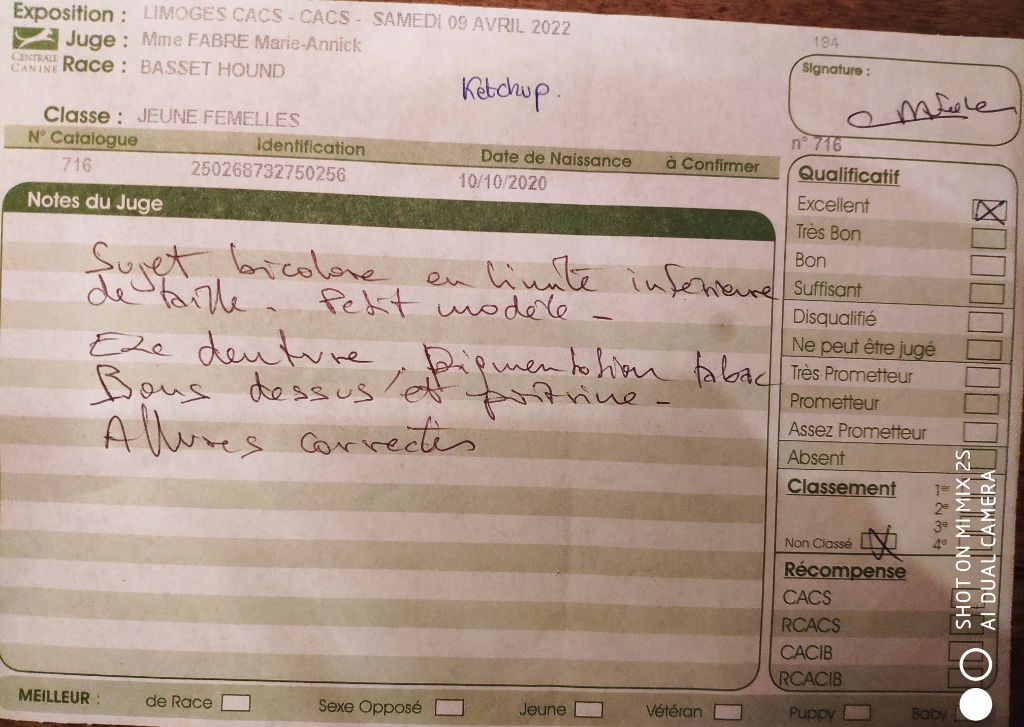 Exposition : LIMOGES CACS - CACS - SAMEDI 09 AVRIL 2022
Juge : Mme FABRE Marie-Annick
CENTRALE CANINE
Race : BASSET HOUND
Ketchup.
Classe : JEUNE FEMELLES
N° Catalogue Identification Date de Naissance à Confirmer
716 250268732750256 10/10/2020
Notes du Juge
Sujet bicolore en limite inférieure
de taille. Petit modèle -
Exe denture. Pigmentation tabac
Bons dessus et poitrine -
Allures correctes
194
Signature :
n° 716
Qualificatif
Excellent
Très Bon
Bon
Suffisant
Disqualifié
Ne peut être jugé
Très Prometteur
Prometteur
Assez Prometteur
Absent
Classement
1er
2e
3e
4e
Non Classé
Récompense
CACS
RCACS
CACIB
RCACIB
MEILLEUR : de Race Sexe Opposé Jeune Vétéran Puppy Baby
SHOT ON MI MIX 2S
AI DUAL CAMERA